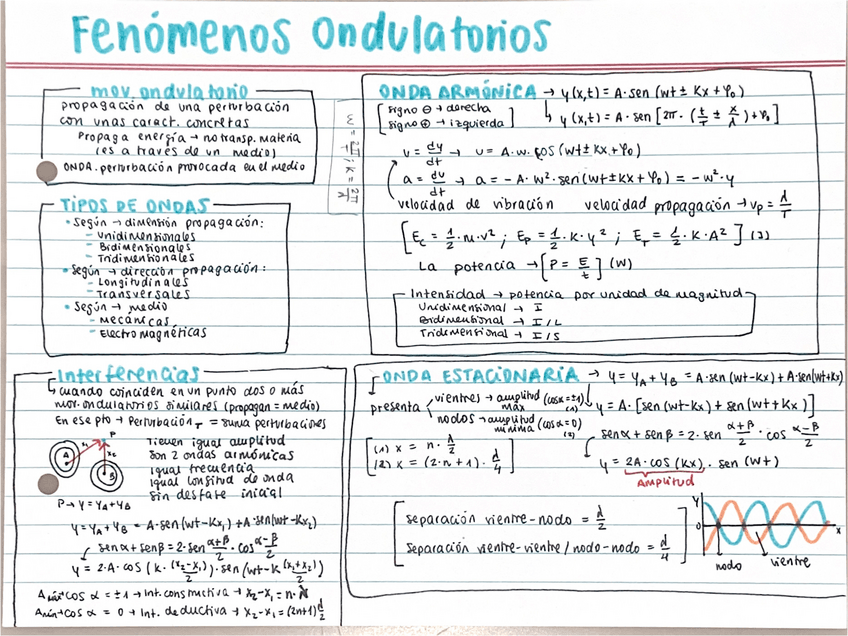 Fenómenos Ondulatorios
mov. ondulatorio
propagación de una perturbación
con unas caract. concretas
Propaga energía → no transp. materia
(es a través de un medio)
ONDA. perturbación provocada en el medio
W = 2π/T ; K = 2π/λ
TIPOS DE ONDAS
• Según → dimensión propagación:
– Unidimensionales
– Bidimensionales
– Tridimensionales
• Según → dirección propagación:
– Longitudinales
– Transversales
• Según → medio
– mecánicas
– Electromagnéticas
ONDA ARMÓNICA → y(x,t) = A·sen (wt ± Kx + φ₀)
[signo ⊖ → derecha
signo ⊕ → izquierda]
→ y(x,t) = A·sen [2π·(t/T ± x/λ) + φ₀]
v = dy/dt → v = A·w·cos (wt ± Kx + φ₀)
a = dv/dt → a = -A·w²·sen (wt ± Kx + φ₀) = -w²·y
velocidad de vibración velocidad propagación → vp = λ/T
[Ec = 1/2·m·v² ; Ep = 1/2·K·y² ; ET = 1/2·K·A²] (J)
La potencia → [P = E/t] (W)
Intensidad → potencia por unidad de magnitud
Unidimensional → I
Bidimensional → I/L
Tridimensional → I/S
Interferencias
↳ cuando coinciden en un punto dos o más
mov. ondulatorios similares (propagan = medio)
En ese pto → Perturbación T = suma perturbaciones
P
A
B
Tienen igual amplitud
Son 2 ondas armónicas
igual frecuencia
igual longitud de onda
Sin desfase inicial
P → y = yA + yB
y = yA + yB = A·sen (wt - Kx₁) + A·sen (wt - Kx₂)
senα + senβ = 2·sen α+β/2 · cos α-β/2
y = 2·A·cos (k·(x₂-x₁)/2)·sen (wt - k (x₁+x₂)/2)
cos α = ±1 → int. constructiva → x₂-x₁ = n·λ
Amín → cos α = 0 → int. deductiva → x₂-x₁ = (2n+1) λ/2
ONDA ESTACIONARIA → y = yA + yB = A·sen (wt - Kx) + A·sen (wt + Kx)
presenta
vientres → amplitud máx (cosα = ±1) (1)
nodos → amplitud mínima (cosα = 0) (2)
y = A·[sen (wt - Kx) + sen (wt + Kx)]
senα + senβ = 2·sen α+β/2 · cos α-β/2
y = 2A·cos (Kx)·sen (wt)
Amplitud
[(1) x = n·λ/2
(2) x = (2·n+1)·λ/4]
[Separación vientre-nodo = λ/2
Separación vientre-vientre / nodo-nodo = λ/4]
y
0
x
nodo
vientre